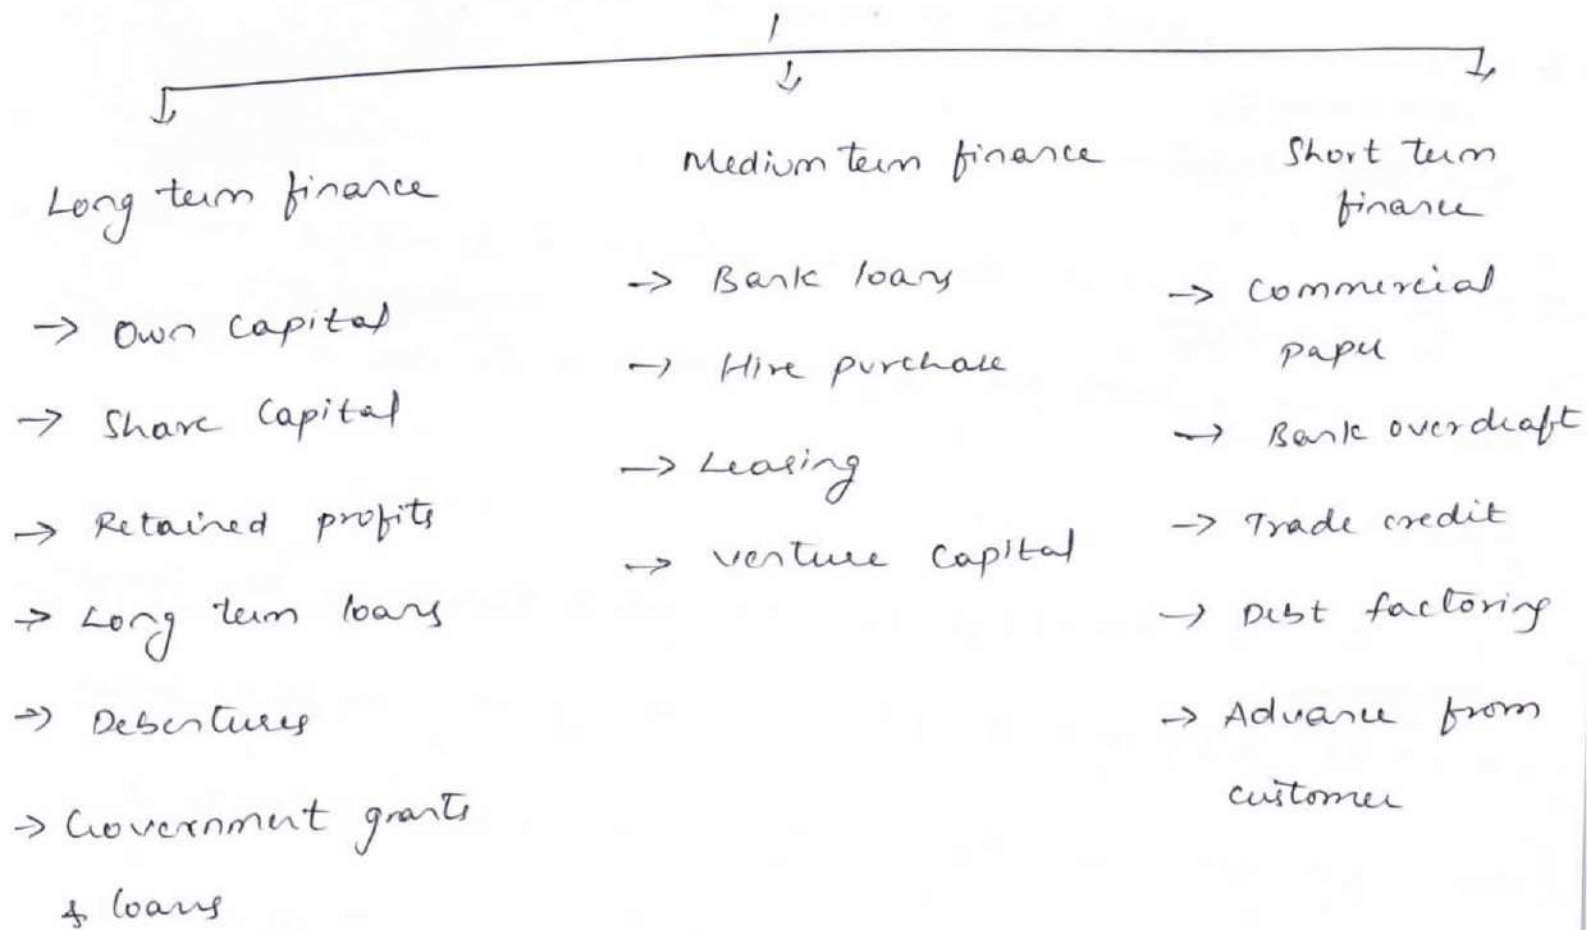 Long term finance
→ Own Capital
→ Share Capital
→ Retained profits
→ Long term loans
→ Debentures
→ Government grants
& loans
Medium term finance
→ Bank loans
→ Hire purchase
→ Leasing
→ Venture Capital
Short term
finance
→ Commercial
paper
→ Bank overdraft
→ Trade credit
→ Debt factoring
→ Advance from
customer